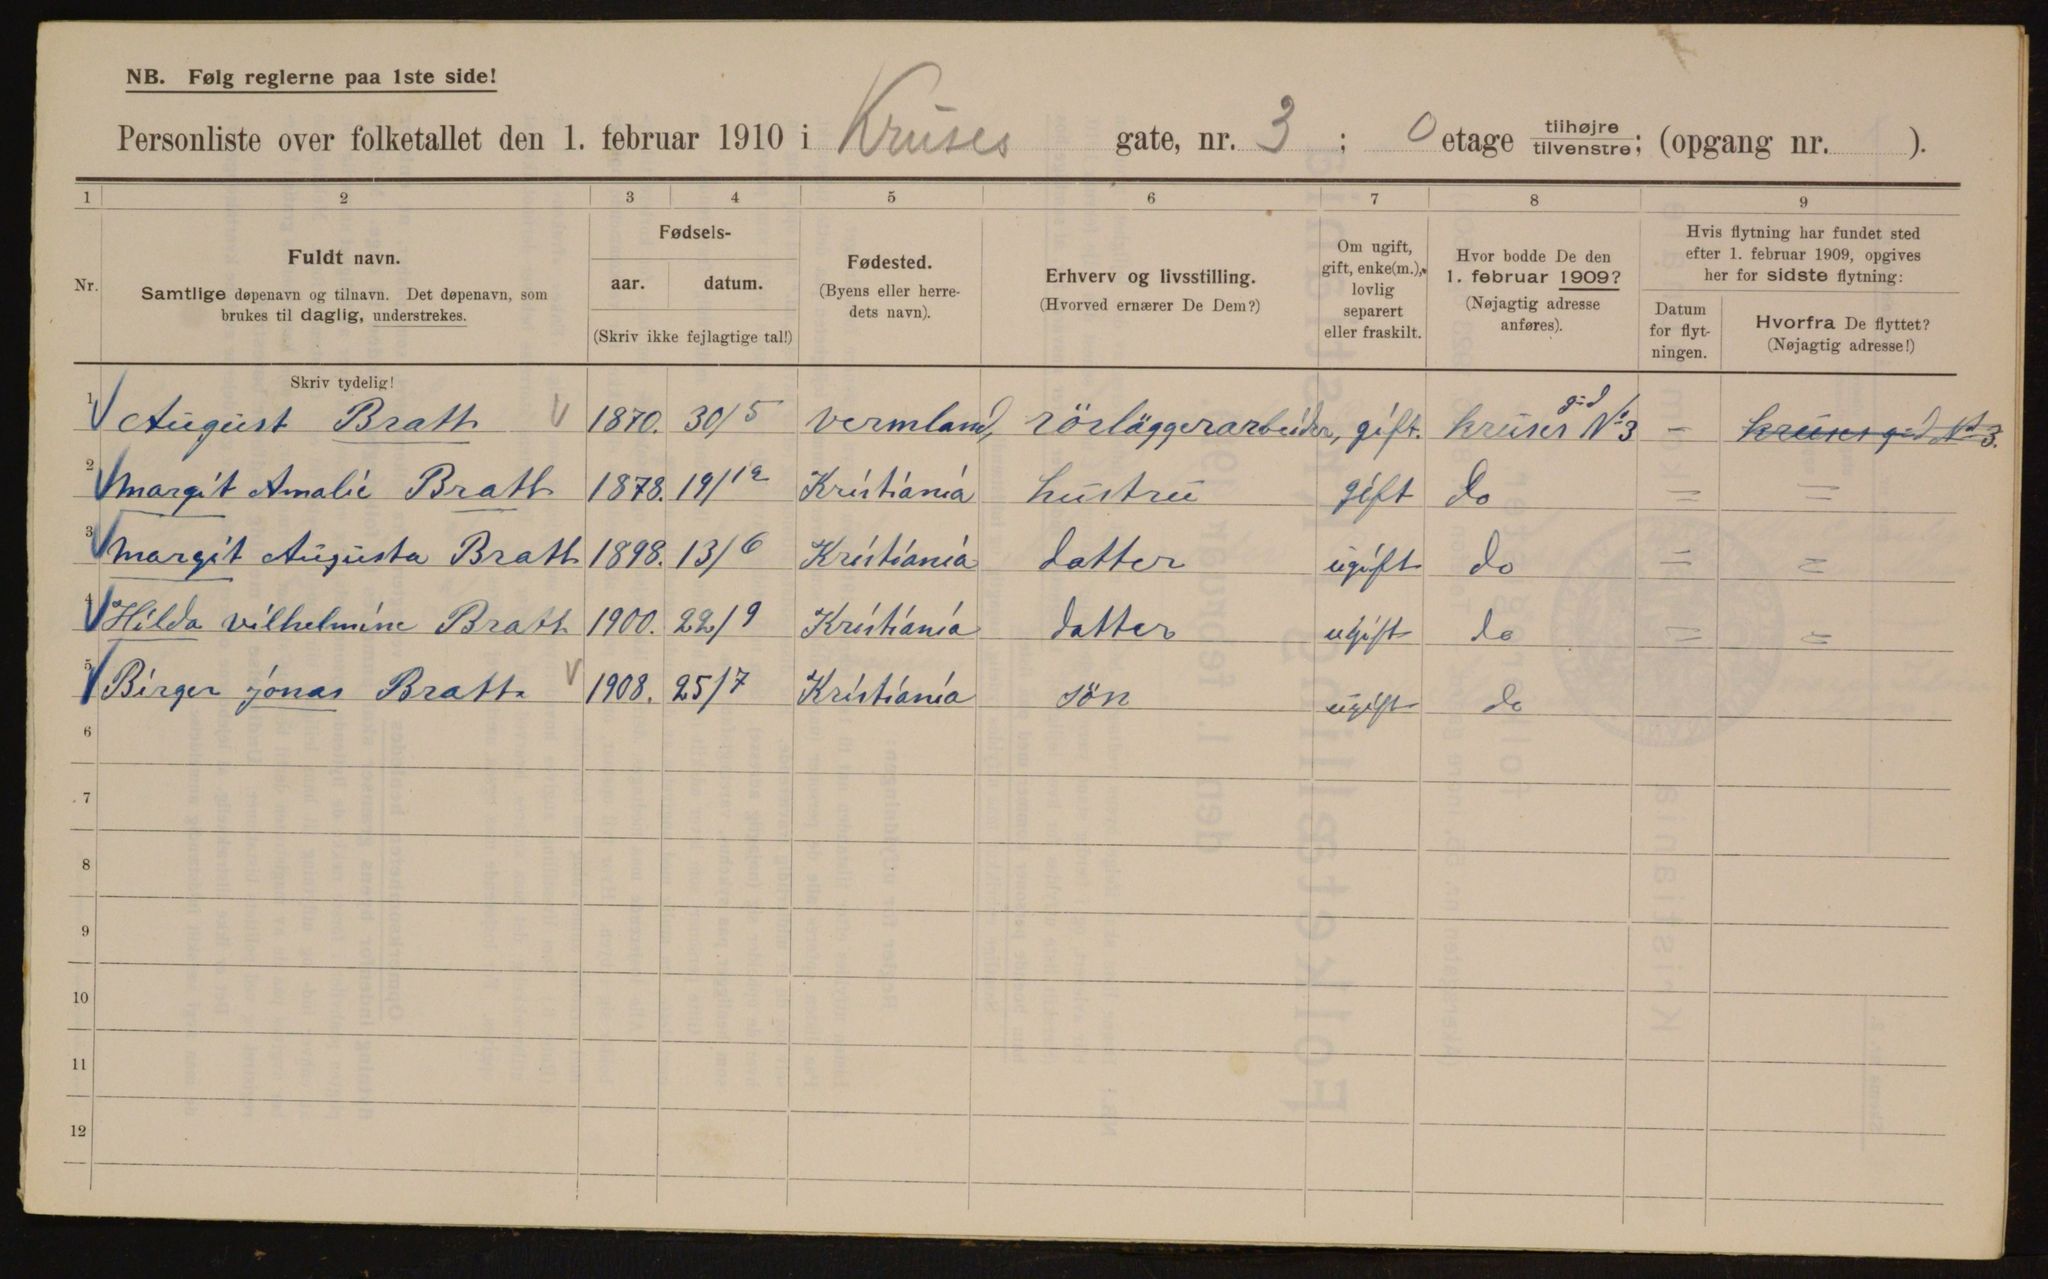 NB. Følg reglerne paa 1ste side!
Personliste over folketallet den 1. februar 1910 i Kruses gate, nr. 3 ; 0 etage tilhøjre tilvenstre; (opgang nr. ).
1 2 3 4 5 6 7 8 9
Nr.
Fuldt navn.
Samtlige døpenavn og tilnavn. Det døpenavn, som
brukes til daglig, understrekes.
Fødsels-
aar. datum.
(Skriv ikke fejlagtige tal!)
Fødested.
(Byens eller herre-
dets navn).
Erhverv og livsstilling.
(Hvorved ernærer De Dem?)
Om ugift,
gift, enke(m.),
lovlig
separert
eller fraskilt.
Hvor bodde De den
1. februar 1909?
(Nøjagtig adresse
anføres).
Hvis flytning har fundet sted
efter 1. februar 1909, opgives
her for sidste flytning:
Datum
for flyt-
ningen.
Hvorfra De flyttet?
(Nøjagtig adresse!)
Skriv tydelig!
1 August Bratt 1870. 30/5 vermland, rörläggerarbeider, gift. kruses gd No 3 – kruses gd No 3.
2 Margit Amalie Bratt 1878. 19/12 Kristiania hustru gift do " "
3 Margit Augusta Bratt 1898. 13/6 Kristiania datter ugift do " "
4 Hilda vilhelmine Bratt 1900. 22/9 Kristiania datter ugift do " "
5 Birger jonas Bratt 1908. 25/7 Kristiania sön ugift do
6
7
8
9
10
11
12